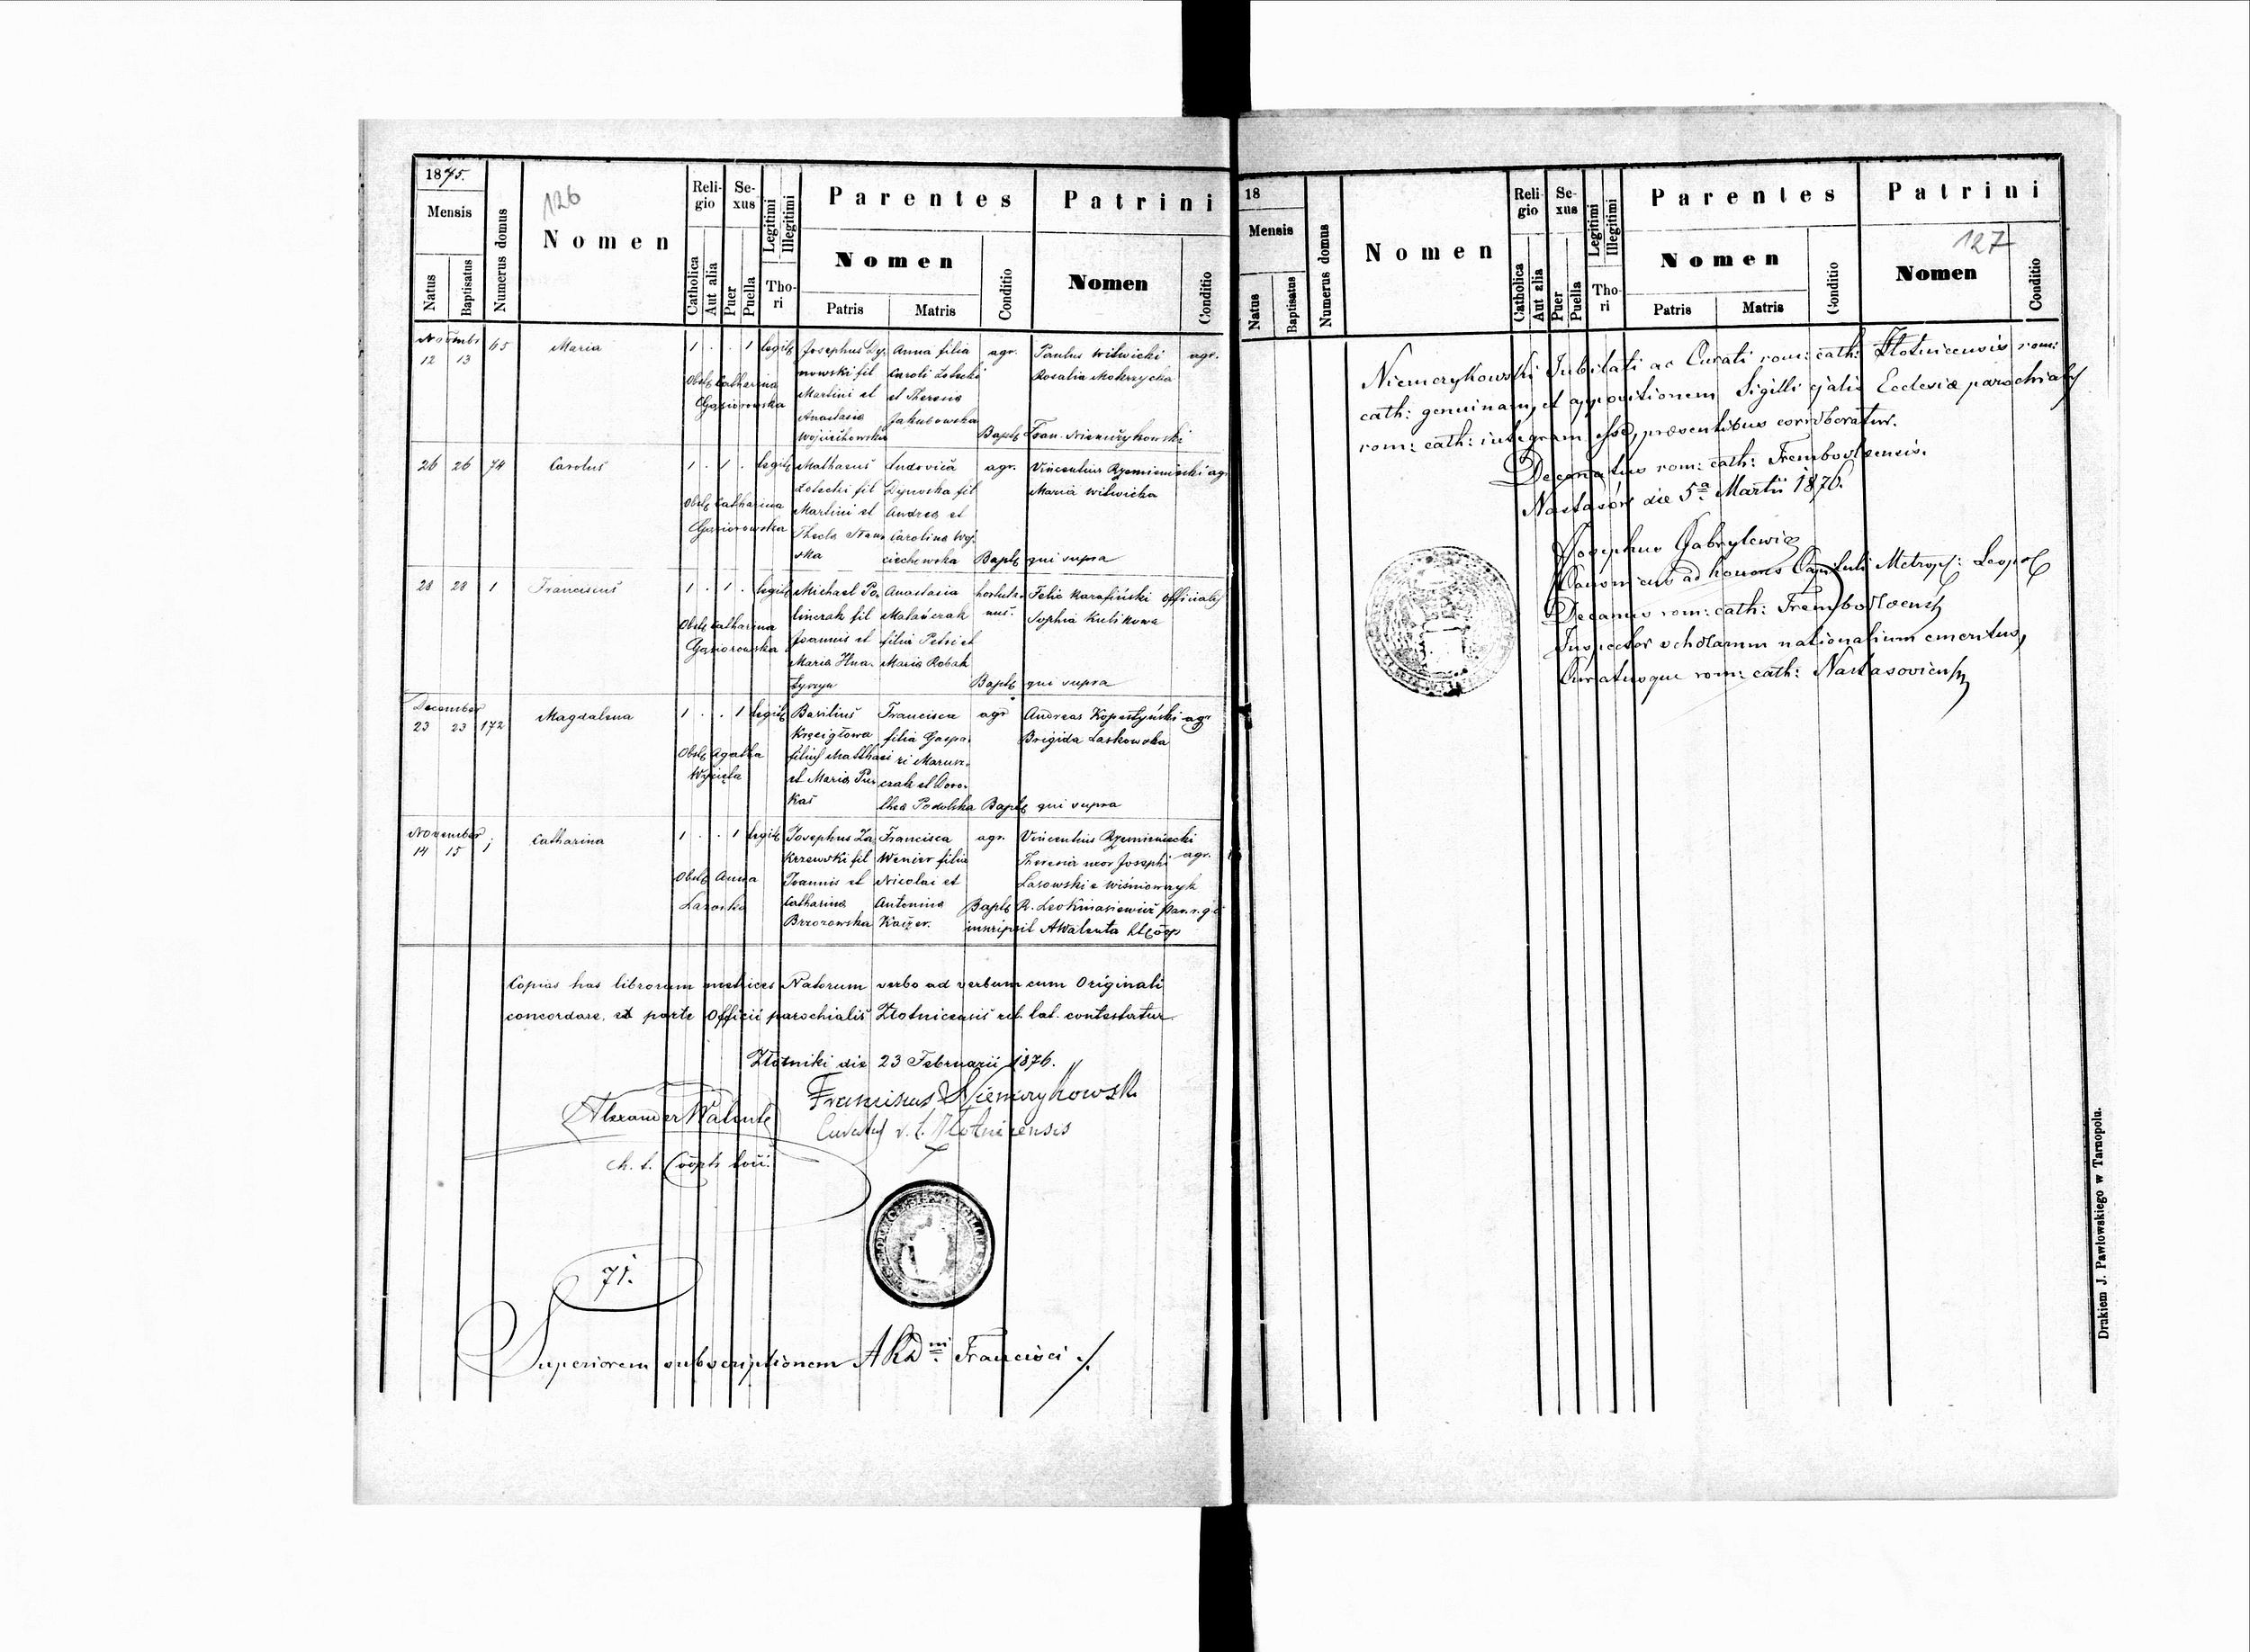 1875.
126
Mensis
Natus
Baptisatus
Numerus domus
Nomen
Religio
Catholica
Aut alia
Sexus
Puer
Puella
Legitimi
Illegitimi
Thori
Parentes
Nomen
Patris
Matris
Conditio
Patrini
Nomen
Conditio
Novembr
12 13 65 Maria 1 . . 1 legit Josephus Dy- Anna filia agr. Paulus Witwicki agr.
nowski fil Caroli Lotecki Rosalia Mokrzycka
Obst Catharina Martini et et Theresia
Gąsiorowska Anastasia Jakubowska
Wojciechowska Bapt Fran. Niemczykowski
26 26 74 Carolus 1 . 1 . legit Mathaeus Ludovica agr. Vincentius Rzemieniecki agr
Lotecki fil Dynoska fil Maria Witwicka
Obst Catharina Martini et Andrea et
Gąsiorowska Thecla Carolina Woj-
ska ciechowska Bapt qui supra
28 28 1 Franciscus 1 . 1 . legit Michael Po- Anastasia hortula- Felix Karafiński officialis
linczak fil Malańczak nus. Sophia Kulikowa
Obst Catharina Joannis et filia Petri et
Gąsiorowska Maria Hna- Maria Robak
tyszyn Bapt qui supra
December
23 23 172 Magdalena 1 . . 1 legit Basilius Francisca agr Andreas Kopestyński agr
Kręcigłowa filia Gaspa- Brigida Laskowska
Obst Agatha filius Matthaei ri Marusz-
Wycięta et Maria Pu- czak et Doro-
kas thea Podolska Bapt qui supra
November
14 15 1 Catharina 1 . . 1 legit Josephus Za- Francisca agr. Vincentius Rzemieniecki
krzewski fil Wenier filia Theresia uxor Josephi agr.
Obst Anna Joannis et Nicolai et Lasowski e Wiśniowczyk
Lasoska Catharina Antonina Bapt R. Leo
Brzozowska Kaizer. inscripsit AWalenta
Copias has librorum metrices Natorum verbo ad verbum cum Originali
concordare, ex parte Officii parochialis Złotnicensis rit. lat. contestatur
Złotniki die 23 Februarii 1876.
Alexander Walenta Franciscus Niemczykowski
Curatus r. l. Złotnicensis
71.
Superiorem subscriptionem Francisci ./.
18
127
Mensis
Natus
Baptisatus
Numerus domus
Nomen
Religio
Catholica
Aut alia
Sexus
Puer
Puella
Legitimi
Illegitimi
Thori
Parentes
Nomen
Patris
Matris
Conditio
Patrini
Nomen
Conditio
Niemczykowski Jubilati ac Curati rom: cath: Złotnicensis rom:
cath: genuinam, et appositionem Sigilli ejatis Ecclesiæ parochialis
rom: cath: integram esse, præsentibus corroboratur.
Decanatus rom: cath: Trembowlœensis.
Nastasów die 5ª Martii 1876.
Josephus Gabrylewicz
Canonicus ad honores Capituli Metrop: Leopol
Decanus rom: cath: Trembowlœensis
Inspector scholarum nationalium emeritus,
Curatusque rom: cath: Nastasoviensis
Drukiem J. Pawłowskiego w Tarnopolu.